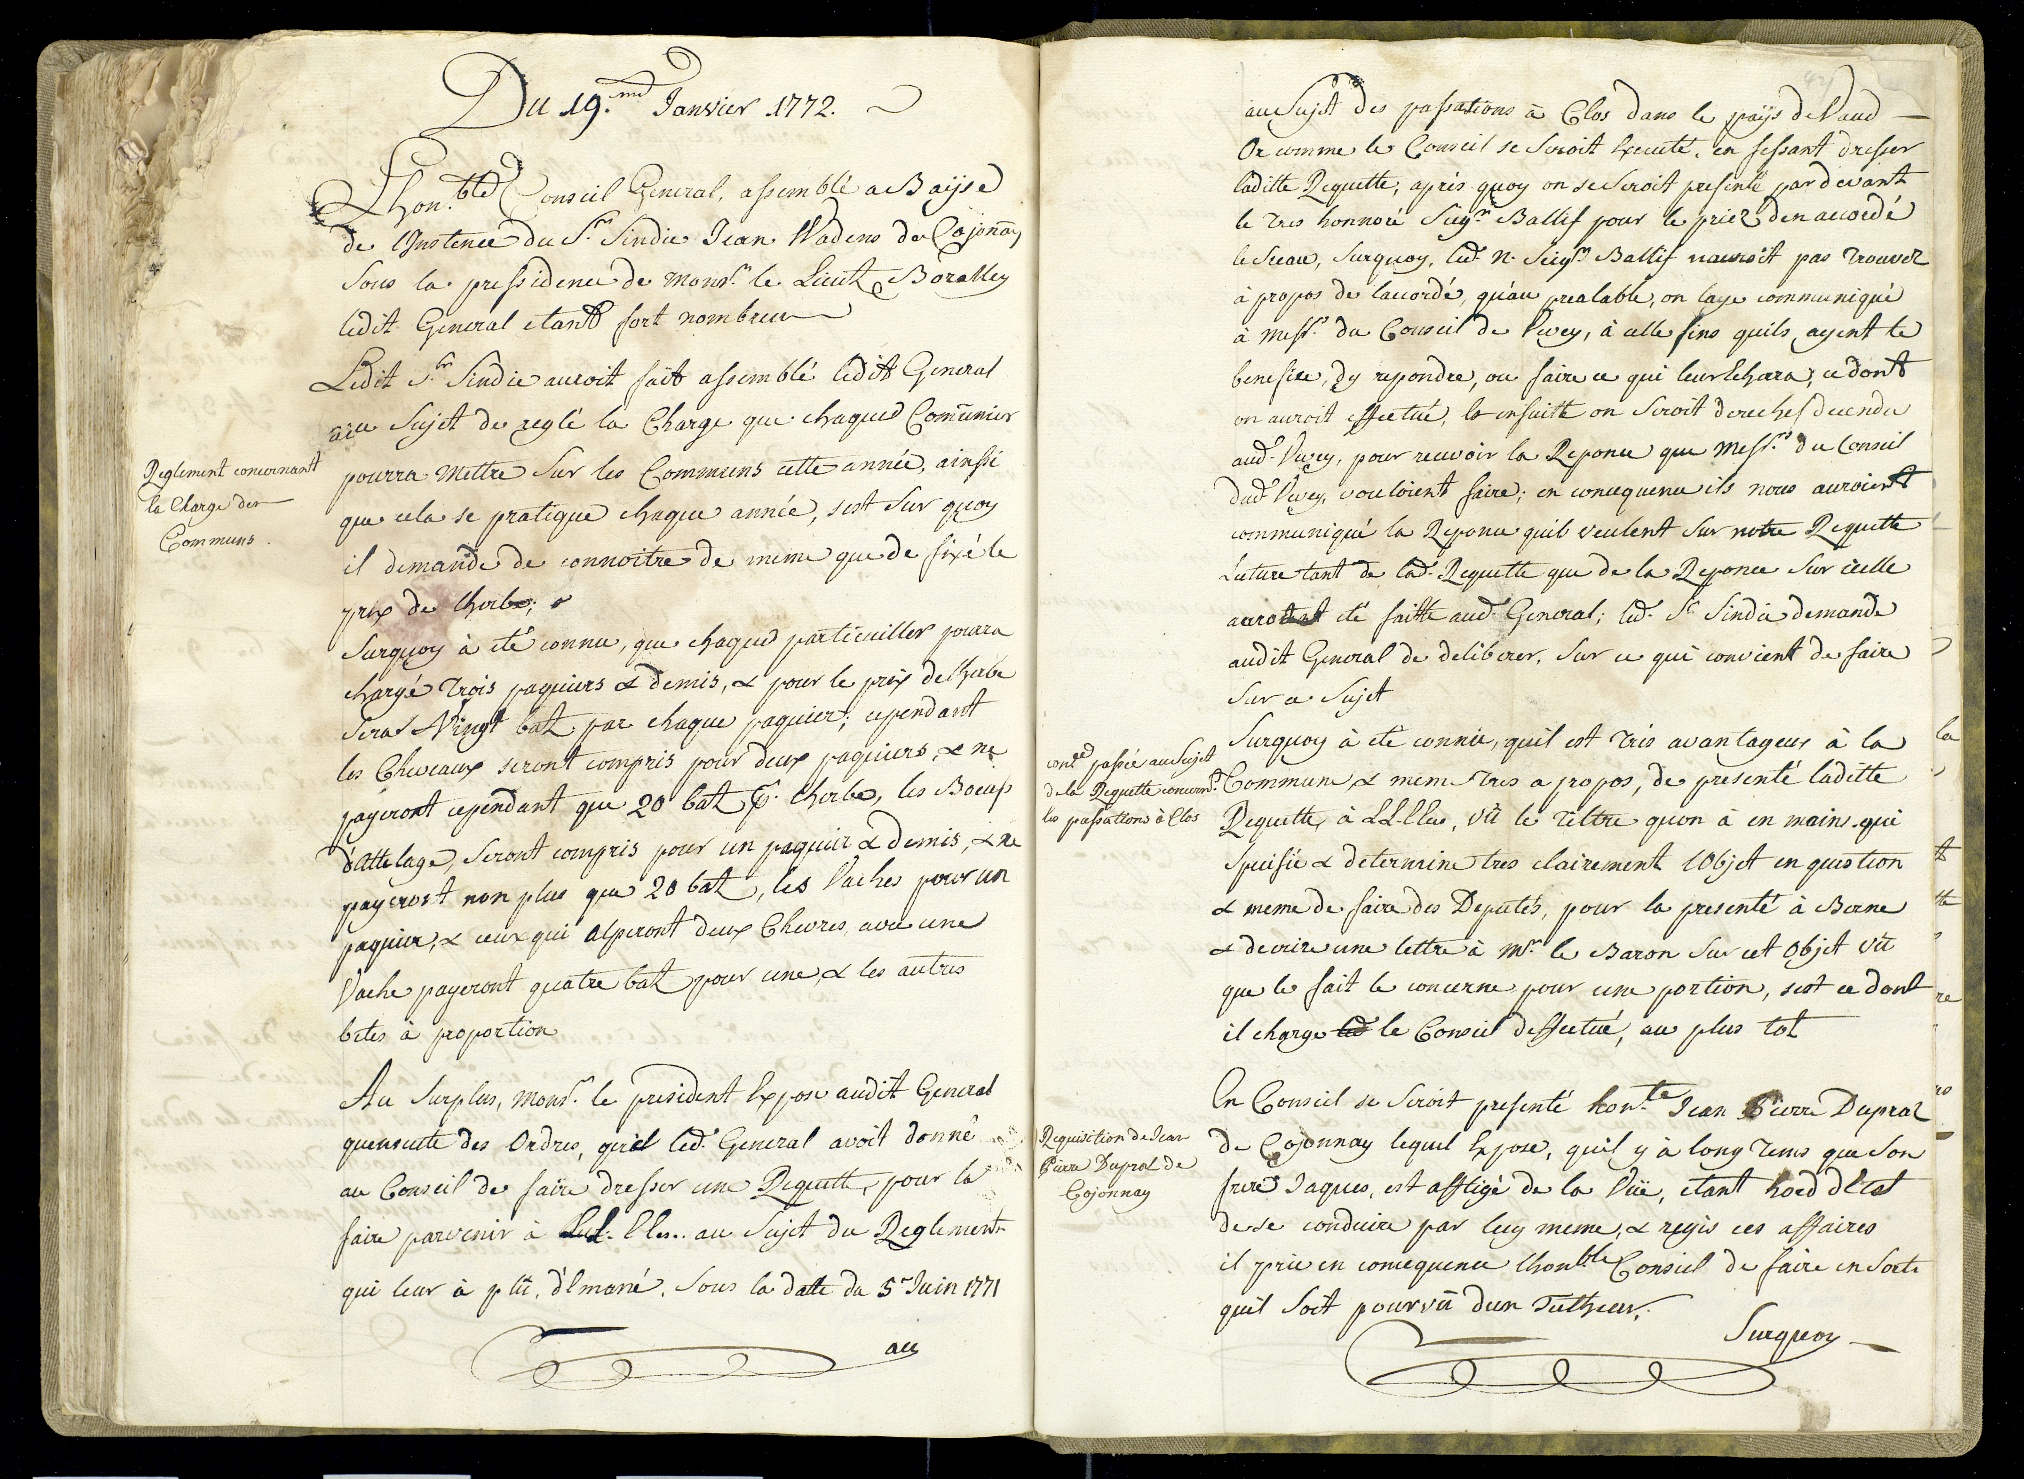 Du 19.me Janvier 1772.
Lhon.ble Conseil General, assemblé a Baÿse
de l'Instence du S.r Sindic Jean Wadens de Cojoñay
Sous la pressidence de Mons.r le Lieut Boralley
ledit General etant fort nombreux
Ledit S.r Sindic auroit fait assemblé ledit General
au Sujet de reglé la Charge que chaque Com̃unier
Reglement concernant
la Charge des
Communs.
pourra mettre Sur les Communs cette année, ainssi
que cela se pratique chaque année, sest Sur quoy
il demande de connoitre de meme que de fixé le
prix de lherbe;
Surquoy à eté connu, que chaque particuiller poura
chargé trois paquiers & demis, & pour le prix de lherbe
Sera Vingt batz par chaque paquier; cependant
les Chevaux seront compris pour deux paquiers, & ne
payeront cependant que 20 batz p.r lherbe, les Boeufs
d'attelage, Seront compris pour un paquier & demis, & ne
payeront non plus que 20 batz, les Vaches pour un
paquier, & ceux qui alperont deux Chevres avec une
Vache payeront quatre batz pour une, & les autres
betes à proportion
Au Surplus, Mons.r le president Expose audit General
quensuitte des Ordres, que led. General avoit donné
au Conseil de faire dresser une Requette, pour la
faire parvenir à LL. EEes. au Sujet du Reglement
qui leur à plû, d'Emané, Sous la datte du 5.e Juin 1771
au
au Sujet des passations à Clos dans le païjs de Vaud
Or comme le Conseil se Seroit Executé, en fessant dresser
laditte Requette, après quoy on se Seroit presenté par devant
le tres honnore Seig.r Ballif pour le priez den accordé
le Sceau, Surquoy, led. N. Seig.r Ballif nauroit pas trouvez
à propos de laccordé, qu'au prealable, on laye communiqué
à Mess.rs du Conseil de Vevey, à celle fins quils ayent le
benefice, dy repondre, ou faire ce qui leur Echera; ce dont
on auroit effectué, & ensuitte on Seroit derechef decendu
aud. Vevey, pour recevoir la Reponce que Mess.rs du Conseil
dud. Vevey, vouloient faire; en concequence ils nous auroient
communiqué la Reponce quil veulent Sur notre Requette
Lecture tant de lad. Requette que de la Reponce Sur icelle
auroient eté faitte aud. General; led. S.r Sindic demande
audit General de deliberer, Sur ce qui convient de faire
Sur ce Sujet
con.ce passée au Sujet
de la Requette concern.t
les passations à Clos
Surquoy à eté connu, quil est tres avantageux à la
Commune & meme tres a propos, de presenté laditte
Requette, à LL EEes, vû le tiltre quon à en mains qui
Specifie & determine tres clairement l'Objet en question
& meme de faire des Deputés, pour la presenté à Berne
& decrire une lettre à M.r le Baron Sur cet Objet vû
que le fait le concerne pour une portion, sest ce dont
il charge led. le Conseil d'effectué, au plus tot
En Conseil se Seroit presenté hon.te Jean Pierre Dupraz
Requisition de Jean
Pierre Dupraz de
Cojonnay
de Cojonnay lequel Expose, quil y à long tems que Son
frere Jaques, est affligé de la Vüe, etant hord d'Etat
de se conduire par luy meme, & regis ces affaires
il prie en concequence lhon.ble Conseil de faire en Sorte
quil Soit pourvû dun Tuthœur,
Surquoy